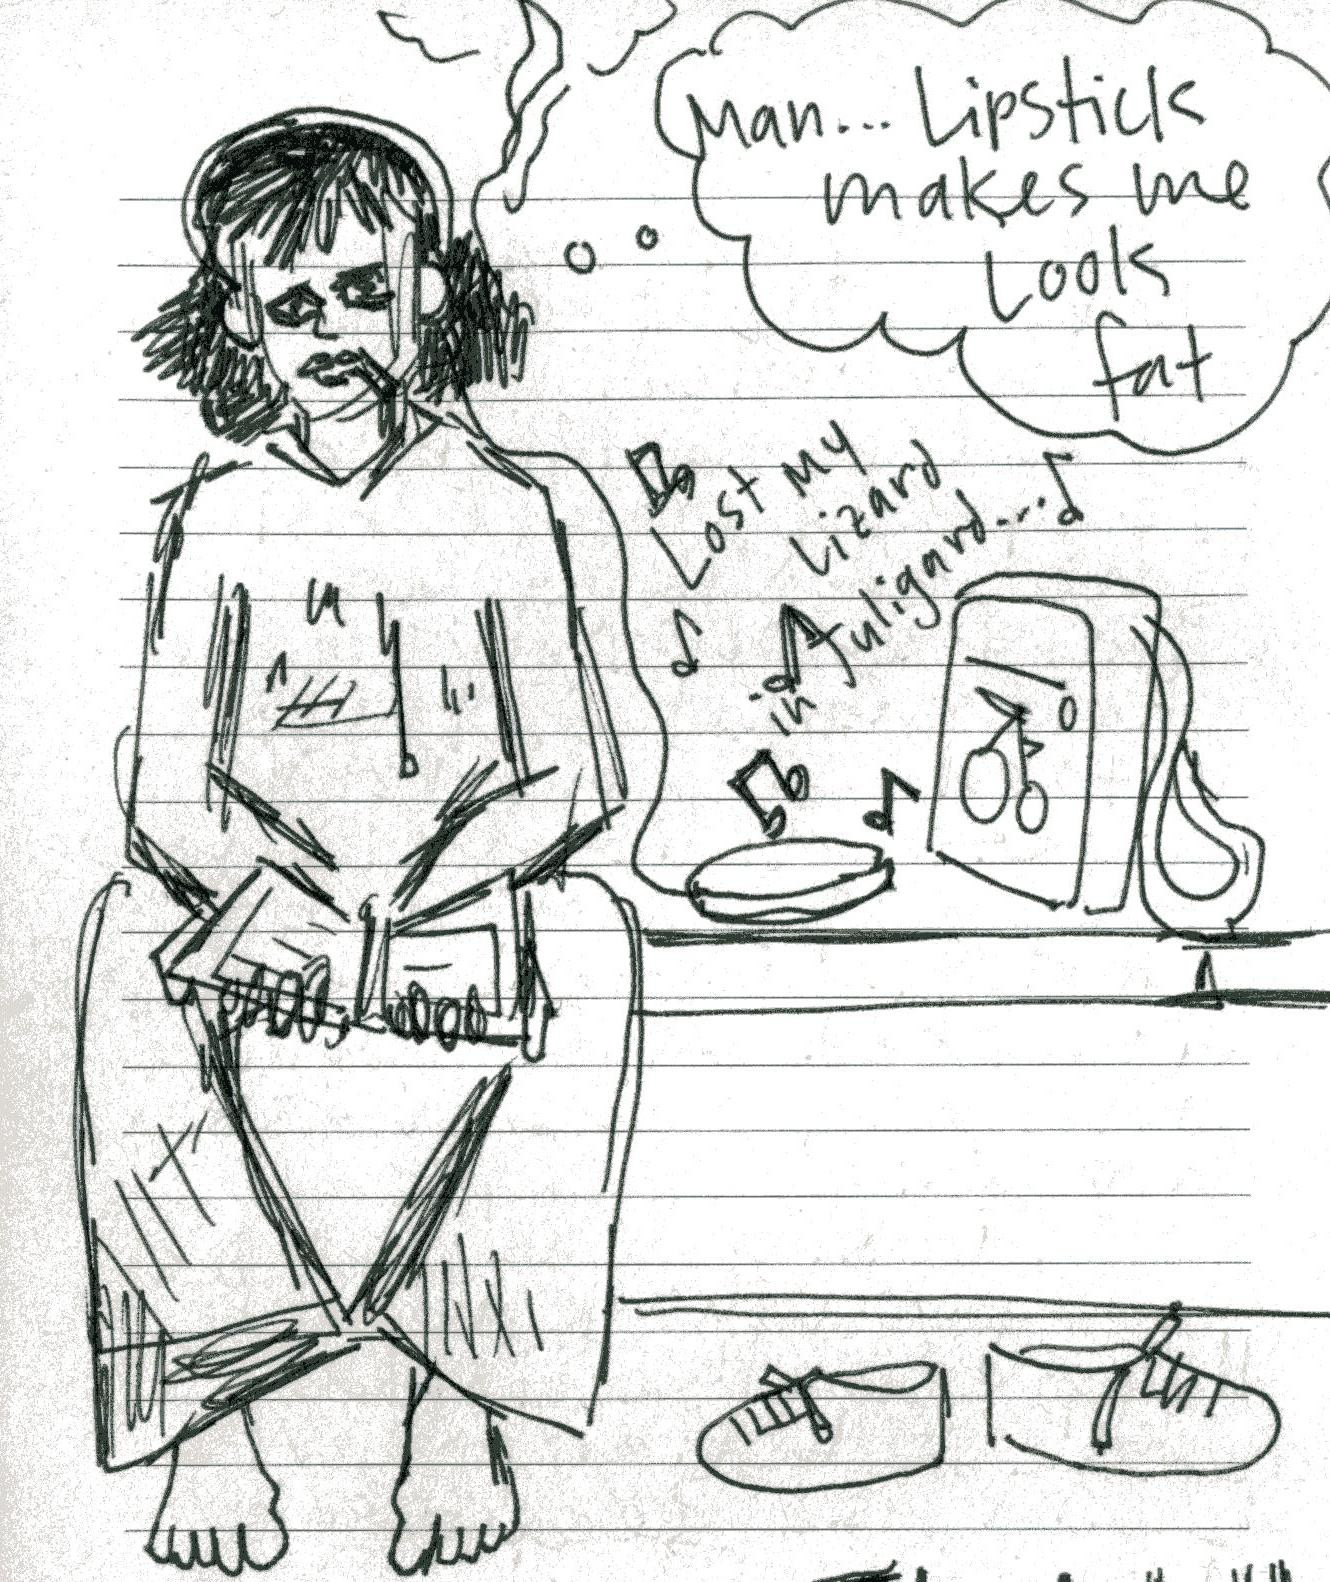 Man... Lipstick
makes me
Look
fat
Lost my
Lizard
in fuligard...